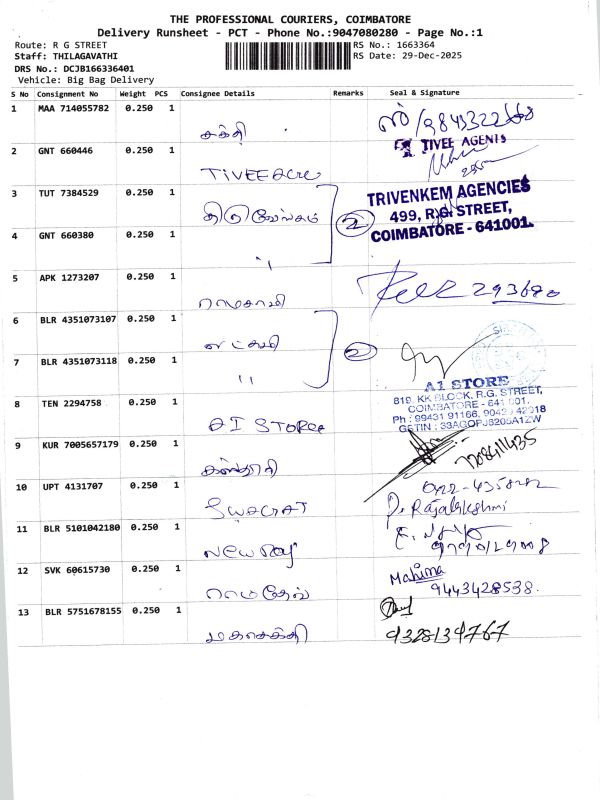 THE PROFESSIONAL COURIERS, COIMBATORE
Delivery Runsheet - PCT - Phone No.:9047080280 - Page No.:1
Route: R G STREET
RS No.: 1663364
Staff: THILAGAVATHI
RS Date: 29-Dec-2025
DRS No.: DCJB166336401
Vehicle: Big Bag Delivery
S No Consignment No Weight PCS Consignee Details Remarks Seal & Signature
1 MAA 714055782 0.250 1 சக்தி
TIVEE AGENTS
2 GNT 660446 0.250 1 TIVEE
3 TUT 7384529 0.250 1 2
TRIVENKEM AGENCIES
499, R.G. STREET,
COIMBATORE - 641001.
4 GNT 660380 0.250 1 "
5 APK 1273207 0.250 1 293680
6 BLR 4351073107 0.250 1 2
7 BLR 4351073118 0.250 1 "
A1 STORE
619, KK BLOCK, R.G. STREET,
COIMBATORE - 641 001.
8 TEN 2294758 0.250 1 A1 STORE
9 KUR 7005657179 0.250 1 கஸ்தூரி 7208411435
10 UPT 4131707 0.250 1 SWACRAT
P. Rajalakshmi
11 BLR 5101042180 0.250 1 New Roy
12 SVK 60615730 0.250 1 ராமதேவ் Mahima
9443428538.
13 BLR 5751678155 0.250 1 மகாசக்தி 9328134767